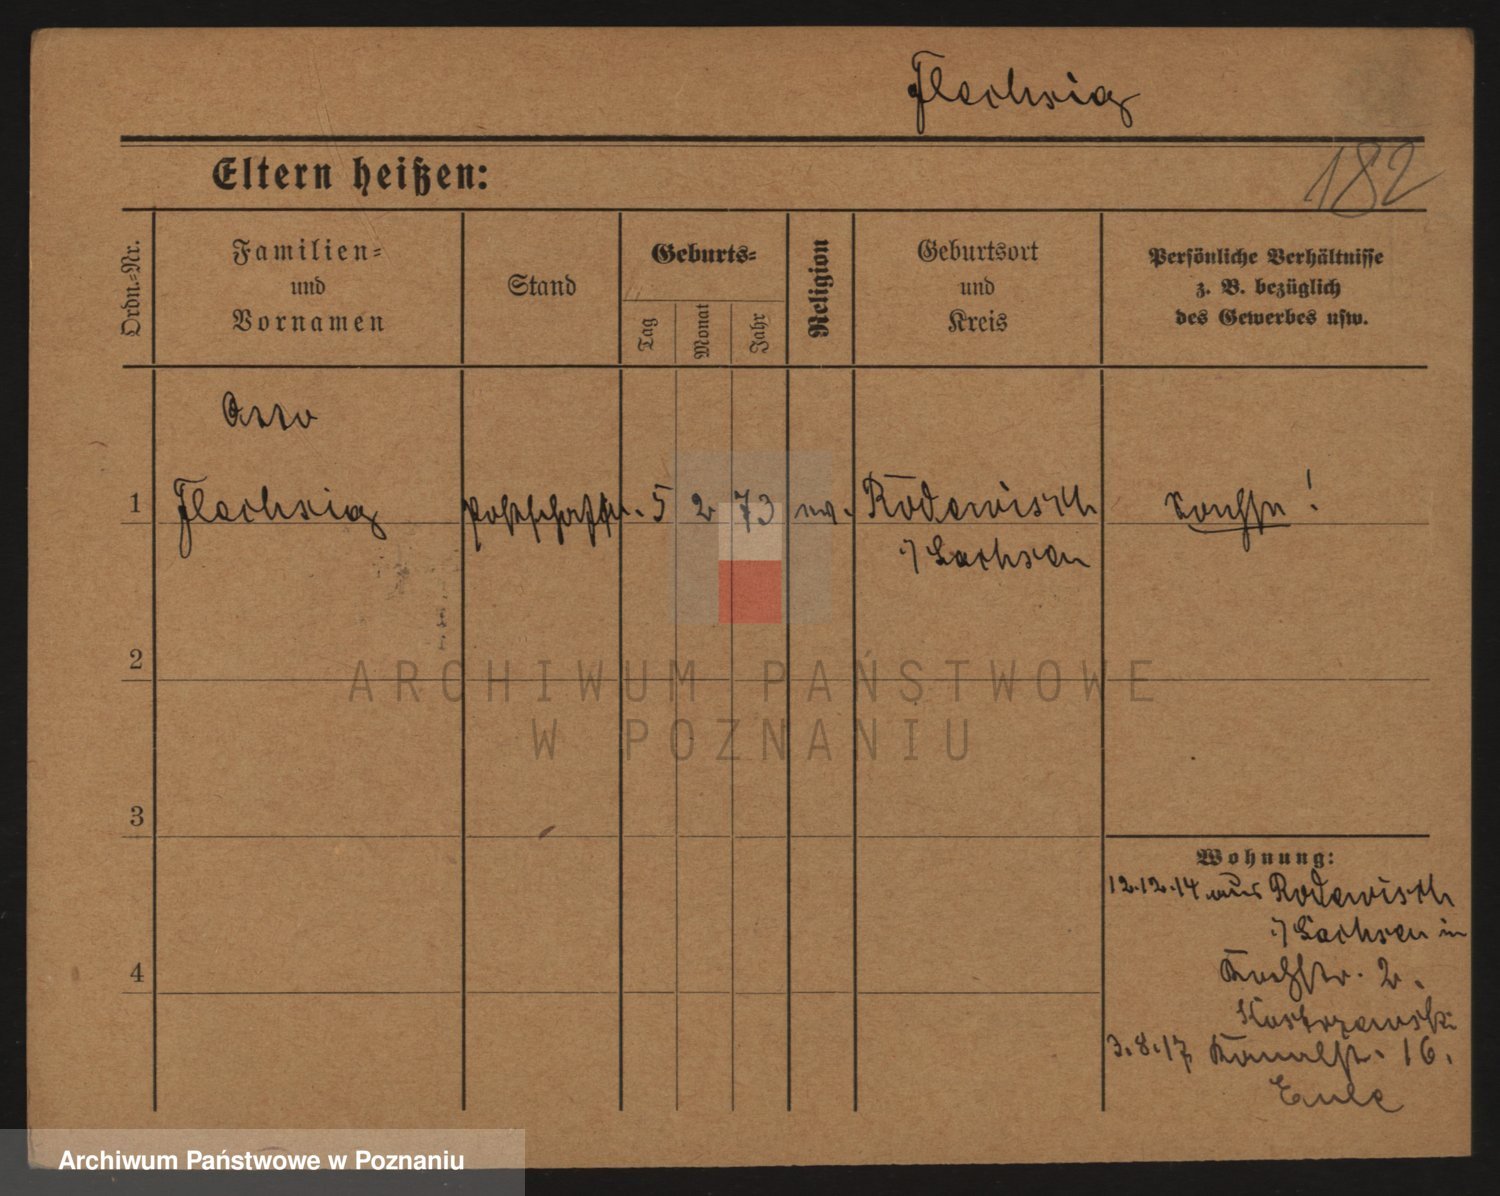 Flechsig
182
Eltern heißen:
Ordn.-Nr.
Familien-
und
Vornamen
Stand
Geburts-
Tag
Monat
Jahr
Religion
Geburtsort
und
Kreis
Persönliche Verhältnisse
z. B. bezüglich
des Gewerbes usw.
Otto
1 Flechsig 5 2 73 ev. Rodewisch
i/ Sachsen
2
3
4
Wohnung:
12.12.14 aus Rodewisch
i/ Sachsen in
2.
Kostrzewski
3.8.17 16.
Eule
ARCHIWUM PAŃSTWOWE
W POZNANIU
Archiwum Państwowe w Poznaniu